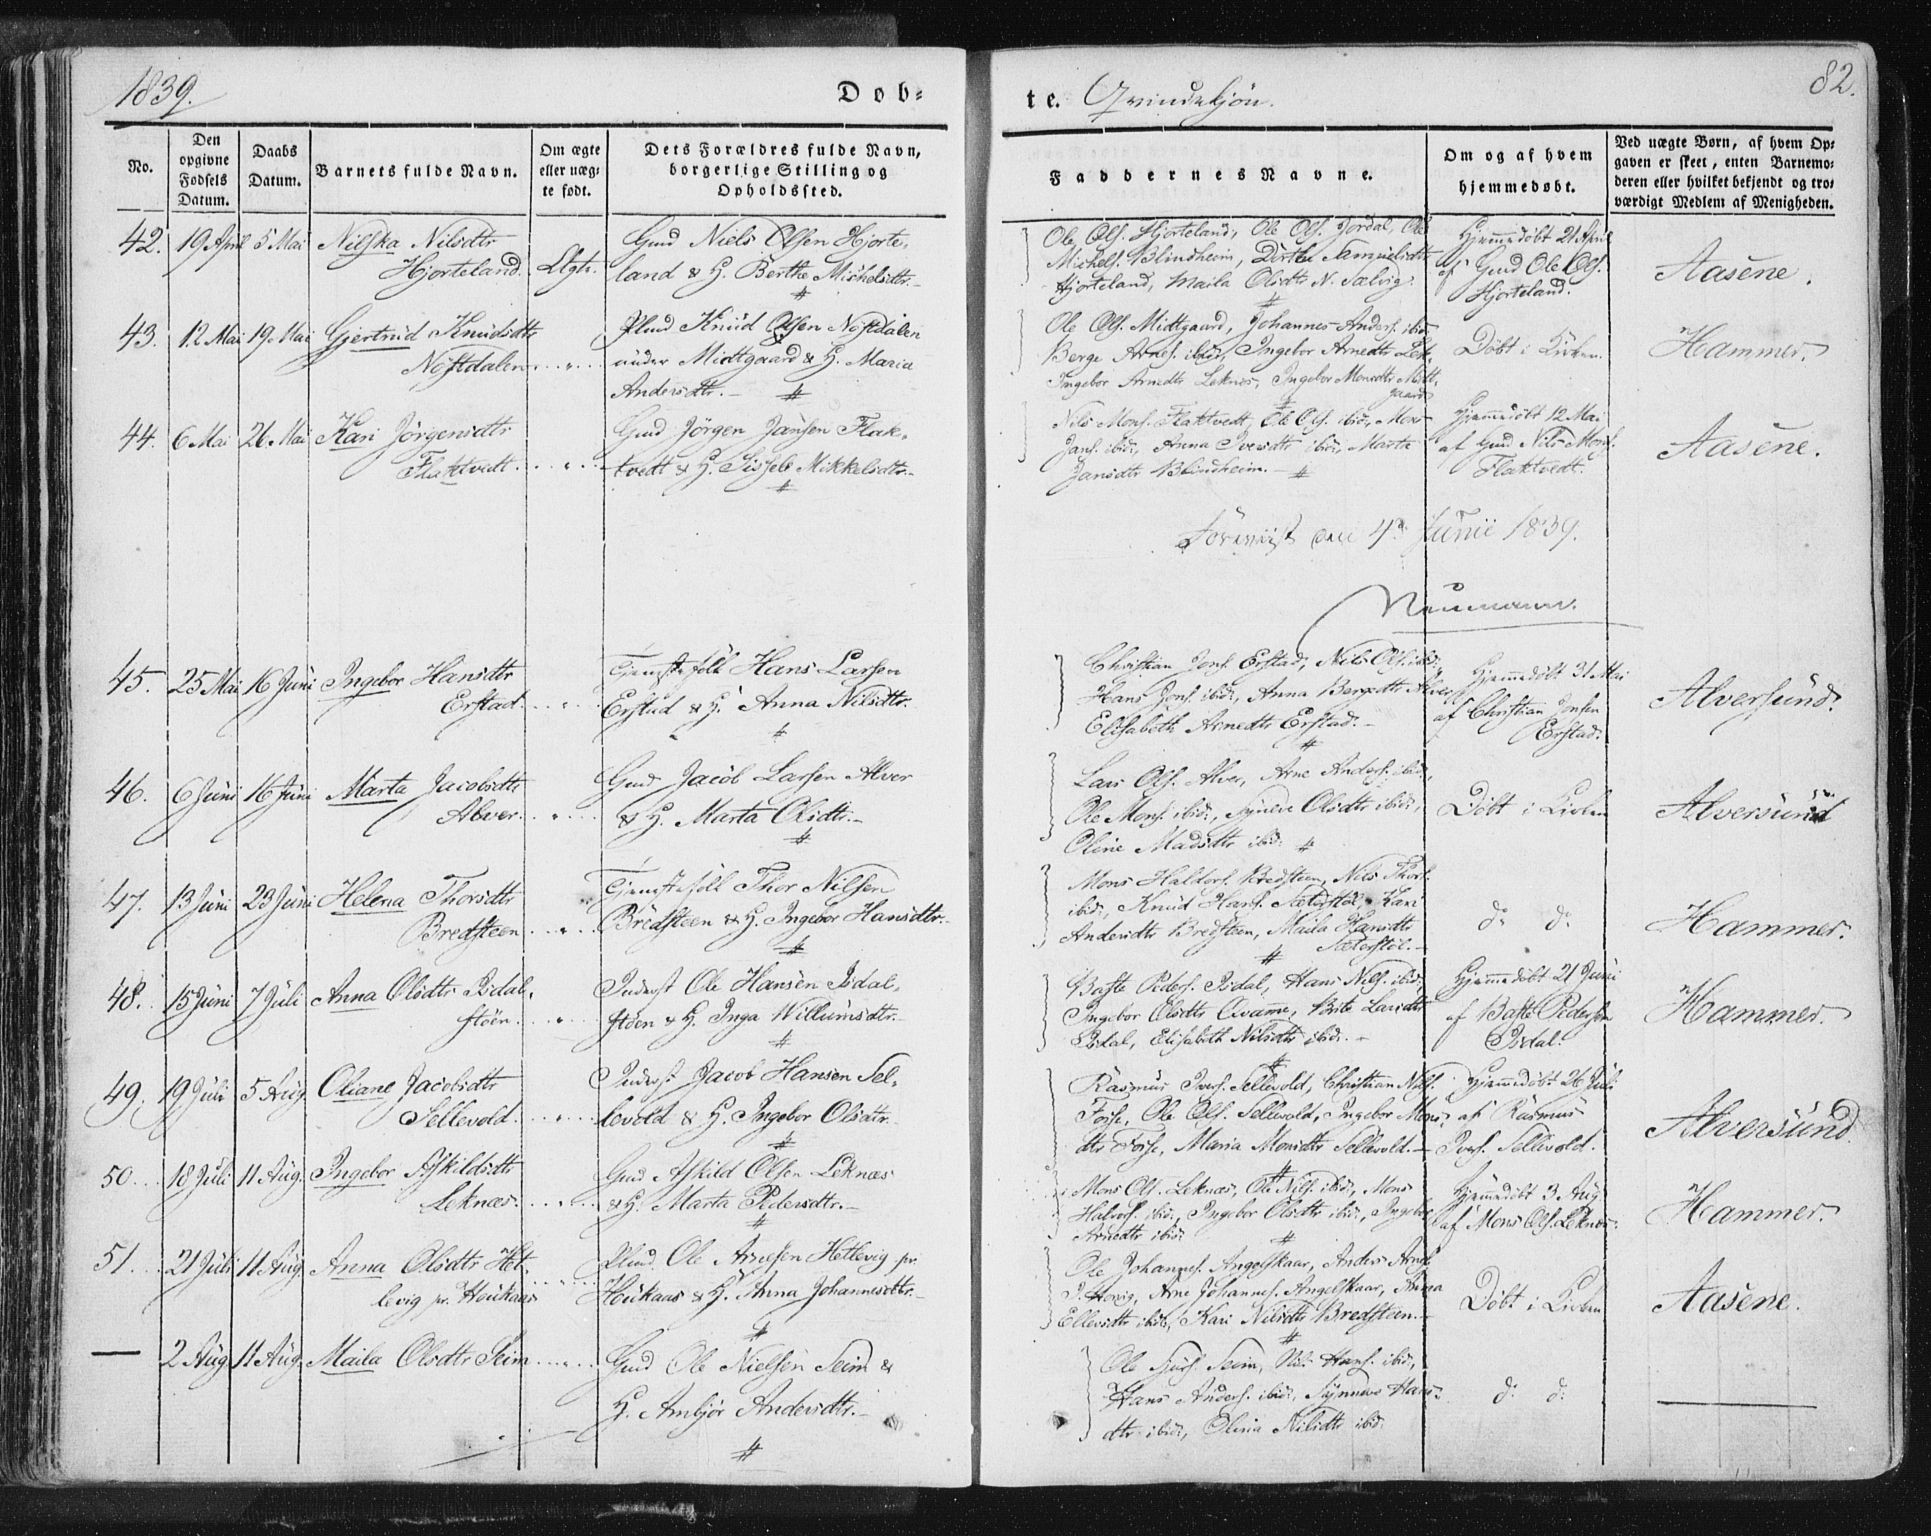 1839.
Døb-
te. Qvindekjön.
82.
No.
Den opgivne Fødsels Datum.
Daabs Datum.
Barnets fulde Navn.
Om ægte eller uægte født.
Dets Forældres fulde Navn, borgerlige Stilling og Opholdssted.
Faddernes Navne.
Om og af hvem hjemmedøbt.
Ved uægte Børn, af hvem Opgaven er skeet, enten Barnemoderen eller hvilket bekjendt og troværdigt Medlem af Menigheden.
42. 19 April 5 Mai Nilska Nilsdtr
Hjorteland. Ægte.
Gmd Niels Olsen Hjorte-
land & H. Berthe Michelsdtr.
Ole Ols. Hjorteland, Ole Ols. Jordal, Ole
Michels. Blindheim, Dorthe Samuelsdtr
Hjorteland, Maila Olsdtr N. Sælvig.
Hjemmedøbt 21 April
af Gmd Ole Ols.
Hjorteland.
Aasene.
43. 12 Mai 19 Mai Gjertrud Knudsdtr
Nøstdalen
Plmd Knud Olsen Nøstdalen
under Midtgaard & H. Maria
Andersdtr.
Ole Ols. Midtgaard, Johannes Anders. ibid.
Berge Arnes. ibid., Ingebor Arnedtr Lek-
Ingebor Arnedtr Leknes, Ingebor Monsdtr Midt-
gaard
Døbt i Kirken.
Hammer.
44. 6 Mai 26 Mai Kari Jörgensdtr
Flaktvedt
Gmd Jörgen Jansen Flak-
tvedt & H. Sissele Mikkelsdtr.
Nils Mons. Flaktvedt, Ole Ols. ibid., Mons
Jans. ibid., Anna Iversdtr ibid., Marta
Jansdtr Blindheim.
Hjemmedøbt 12 Mai
af Gmd Nils Mons.
Flaktvedt.
Aasene.
den 4de Junii 1839.
Neumann.
45. 25 Mai 16 Juni Ingebor Hansdtr
Erstad.
Tjenestefolk Hans Larsen
Erstad & H. Anna Nilsdtr.
Christian Jons. Erstad, Nils Ols. ibid.,
Hans Jons. ibid., Anna Bergedtr Alver
Elisabeth Arnedtr Erstad.
Hjemmedøbt 31 Mai
af Christian Jonsen
Erstad.
Alversund.
46. 6 Juni 16 Juni Marta Jacobsdtr
Alver.
Gmd Jacob Larsen Alver
& H. Marta Olsdtr.
Lars Ols. Alver, Arne Anders. ibid.,
Ole Mons. ibid., Synneve Olsdtr ibid.,
Oline Madsdtr ibid.
Døbt i Kirken
Alversund
47. 13 Juni 23 Juni Helena Thorsdtr
Bredsteen
Tjenestefolk Thor Nilsen
Bredsteen & H. Ingebor Hansdtr.
Mons Haldors. Bredsteen, Nils Thors.
ibid., Knud Hans. Sæterstöl, Kari
Andersdtr Bredsteen, Maila Hansdtr
Sæterstöl.
do do
Hammer.
48. 15 Juni 7 Juli Anna Olsdtr Isdal-
støen.
Inderst Ole Hansen Isdal-
støen & H. Inga Willumsdtr.
Baste Peders. Isdal, Hans Nils. ibid.,
Ingebor Olsdtr Qvamme, Brite Larsdtr
Isdal, Elisabeth Nilsdtr ibid.
Hjemmedøbt 21 Juni
af Baste Pedersen
Isdal.
Hammer.
49. 19 Juli 5 Aug. Oliane Jacobsdtr
Sellevold.
Inderst Jacob Hansen Sel-
levold & H. Ingebor Olsdtr.
Rasmus Ivers. Sellevold, Christian Nils.
Fosse, Ole Ols. Sellevold, Ingebor Mons-
dtr Fosse, Maria Monsdtr Sellevold.
Hjemmedøbt 26 Juli
af Rasmus
Ivers. Sellevold.
Alversund.
50. 18 Juli 11 Aug. Ingebor Askildsdtr
Leknæs.
Gmd Askild Olsen Leknæs
& H. Marta Pedersdtr.
Mons Ols. Leknæs, Ole Nils. ibid., Mons
Halvors. ibid., Ingebor Olsdtr ibid., Ingebor
Arnedtr ibid.
Hjemmedøbt 3 Aug
af Mons Ols. Leknæs.
Hammer.
51. 21 Juli 11 Aug. Anna Olsdtr Het-
levig pr. Houkaas
Plmd. Ole Arnesen Hetlevig pr.
Houkaas & H. Anna Johannesdtr.
Ole Johannes. Angelskaar, Anders Arnes.
Arne Johannes. Angelskaar, Anna
Ellevsdtr ibid., Kari Nilsdtr Bredsteen.
Døbt i Kirken
Aasene.
— 2 Aug. 11 Aug. Maila Olsdtr Seim
Gmd Ole Nielsen Seim &
H. Ambjör Andersdtr.
Seim, Nils Hans. ibid.,
Hans Anders. ibid., Synneve Hans-
dtr ibid., Olina Nilsdtr ibid.
do do